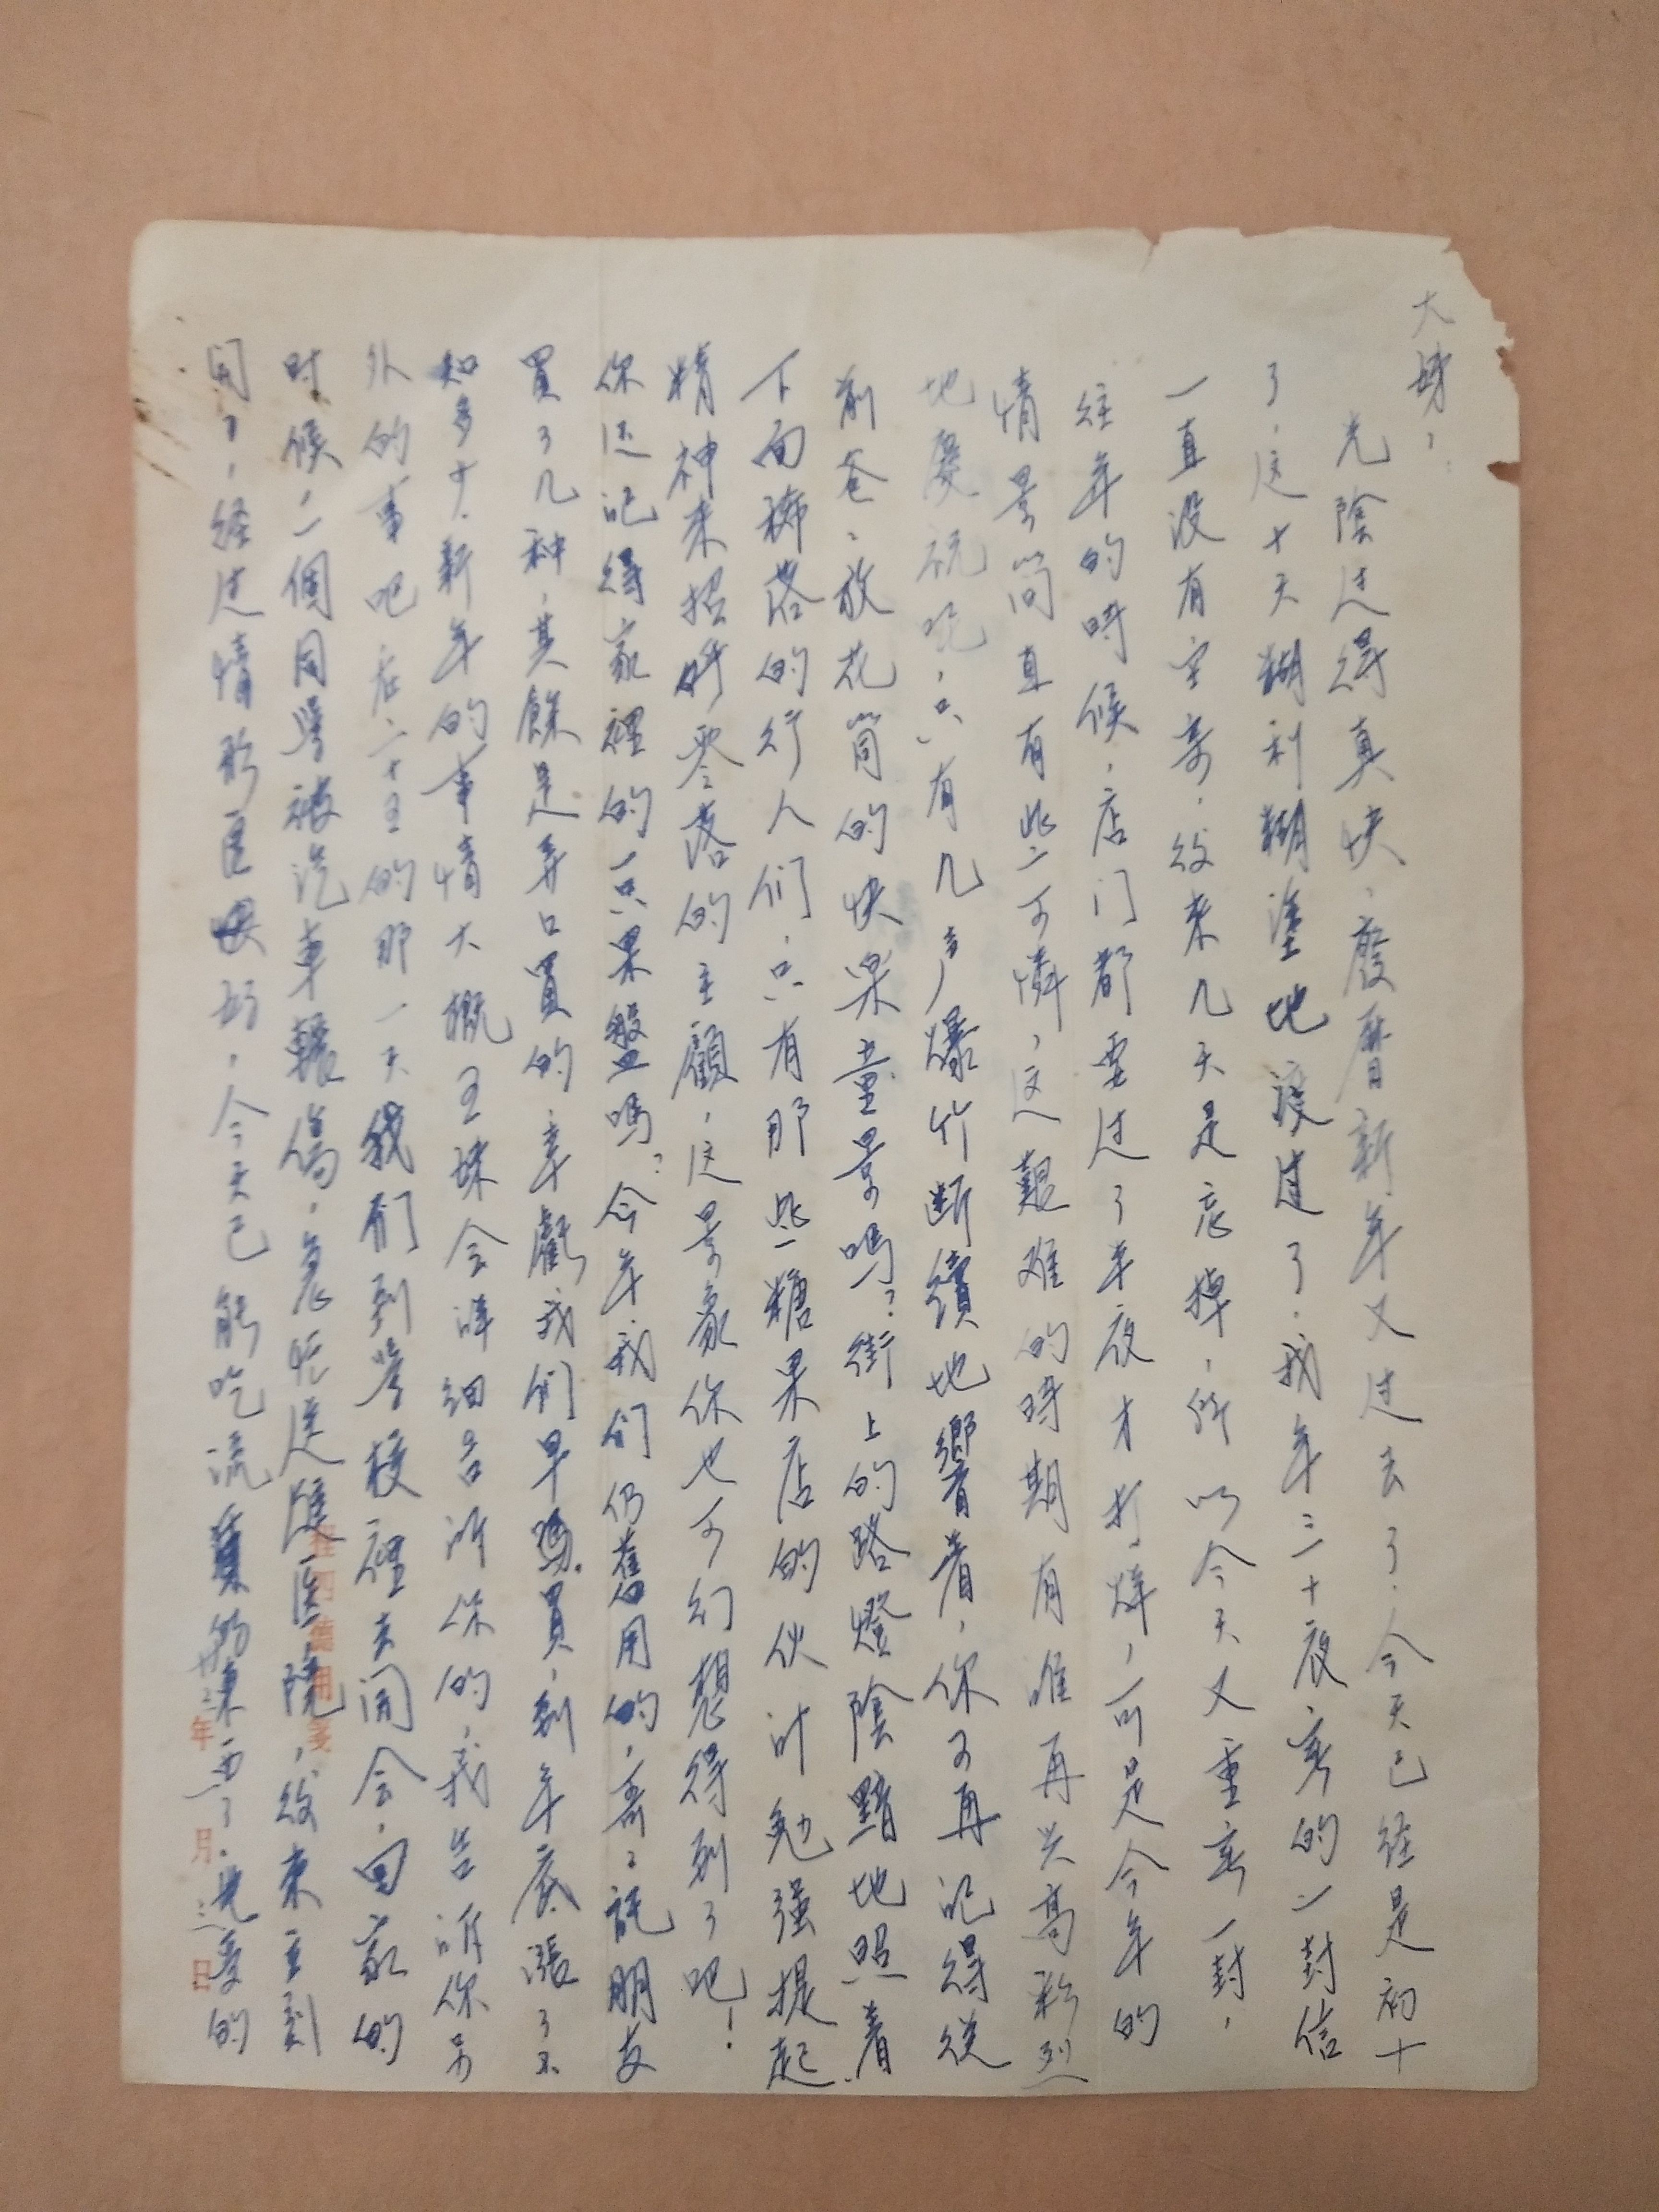 大姊：
光陰过得真快、廢曆新年又过去了．今天已经是初十
了，这十天糊利糊塗地渡过了．我年三十夜、寄的一封信
一直没有空寄．後来几天是忘掉，所以今天又重寫一封，
往年的時候，店门都要过了半夜才打烊，可是今年的
情景简直有些可憐，这艱难的時期有谁再兴高彩烈
地慶祝呢，只有几声爆竹断續地響着，你可再記得從
前爸爸放花筒的快樂童景嗎？街上的路燈陰黯地照着
下面稀落的行人们，只有那些糖果店的伙计勉强提起
精神来招呼零落的主顧，这景象你也可幻想得到了吧！
你还記得家裡的一只果盤嗎？今年我们仍舊用的，寄託朋友
買了几种，其餘是弄口買的，幸虧我们早買，到年底漲了不
知多少．新年的事情大概玉妹会詳细告訴你的，我告訴你另
外的事吧在二十五的那一天我们到学校裡去開会，回家的
时候，一個同學被汽車輾傷，急忙送進医院，後来直到
開了，经过情形医好，今天已能吃流質的東西了．光受的
桂四德用箋
卅三年一月三日